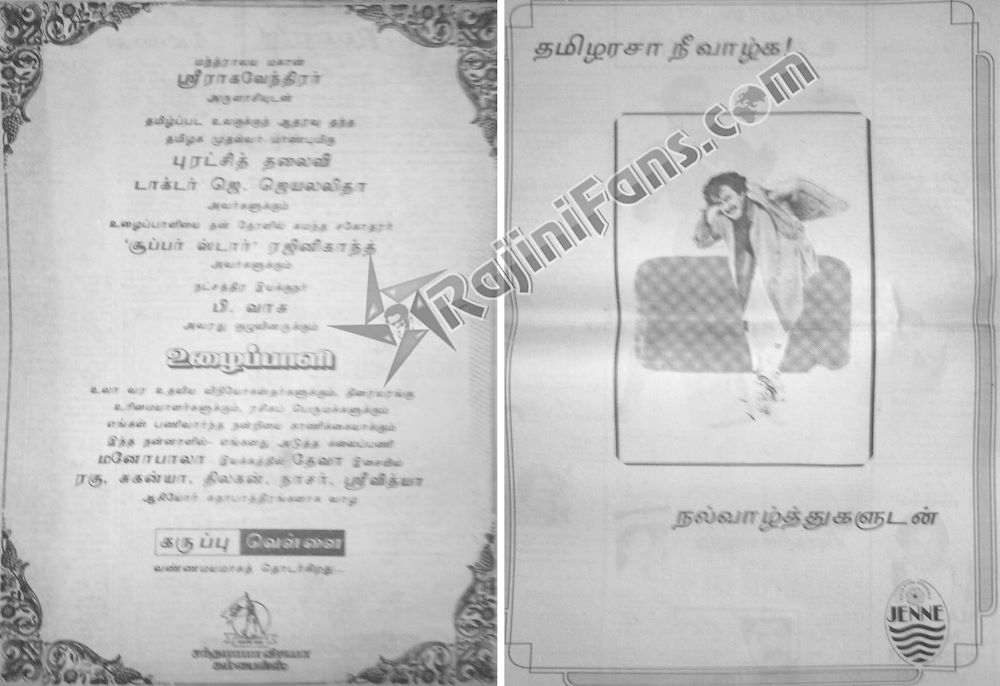 மந்த்ராலய மகான்
ஸ்ரீராகவேந்திரர்
அருளாசியுடன்
தமிழ்ப்பட உலகுக்குந் ஆதரவு தந்த
தமிழக முதல்வர் மாண்புமிகு
புரட்சித் தலைவி
டாக்டர் ஜெ. ஜெயலலிதா
அவர்களுக்கும்
உழைப்பாளியை தன் தோளில் சுமந்த சகோதரர்
'சூப்பர் ஸ்டார்' ரஜினிகாந்த்
அவர்களுக்கும்
நட்சத்திர இயக்குநர்
பி. வாசு
அவரது குழுவினருக்கும்
உழைப்பாளி
உலா வர உதவிய விநியோகஸ்தர்களுக்கும், திரையரங்கு
உரிமையாளர்களுக்கும், ரசிகப் பெருமக்களுக்கும்
எங்கள் பணிவார்ந்த நன்றியை காணிக்கையாக்கும்
இந்த நன்னாளில்- எங்களது அடுத்த கலைப்பணி
மனோபாலா இயக்கத்தில் தேவா இசையில்
ரகு, சுகன்யா, திலகன், நாசர், ஸ்ரீவித்யா
ஆகியோர் கதாபாத்திரங்களாக வாழ
கருப்பு வெள்ளை
வண்ணமயமாகத் தொடர்கிறது...
சந்தமாமா விஜயா
கம்பைன்ஸ்
தமிழரசா நீ வாழ்க!
நல்வாழ்த்துகளுடன்
JENNE
RajiniFans.com